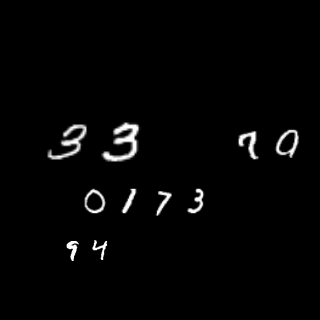 33 70
0173
94